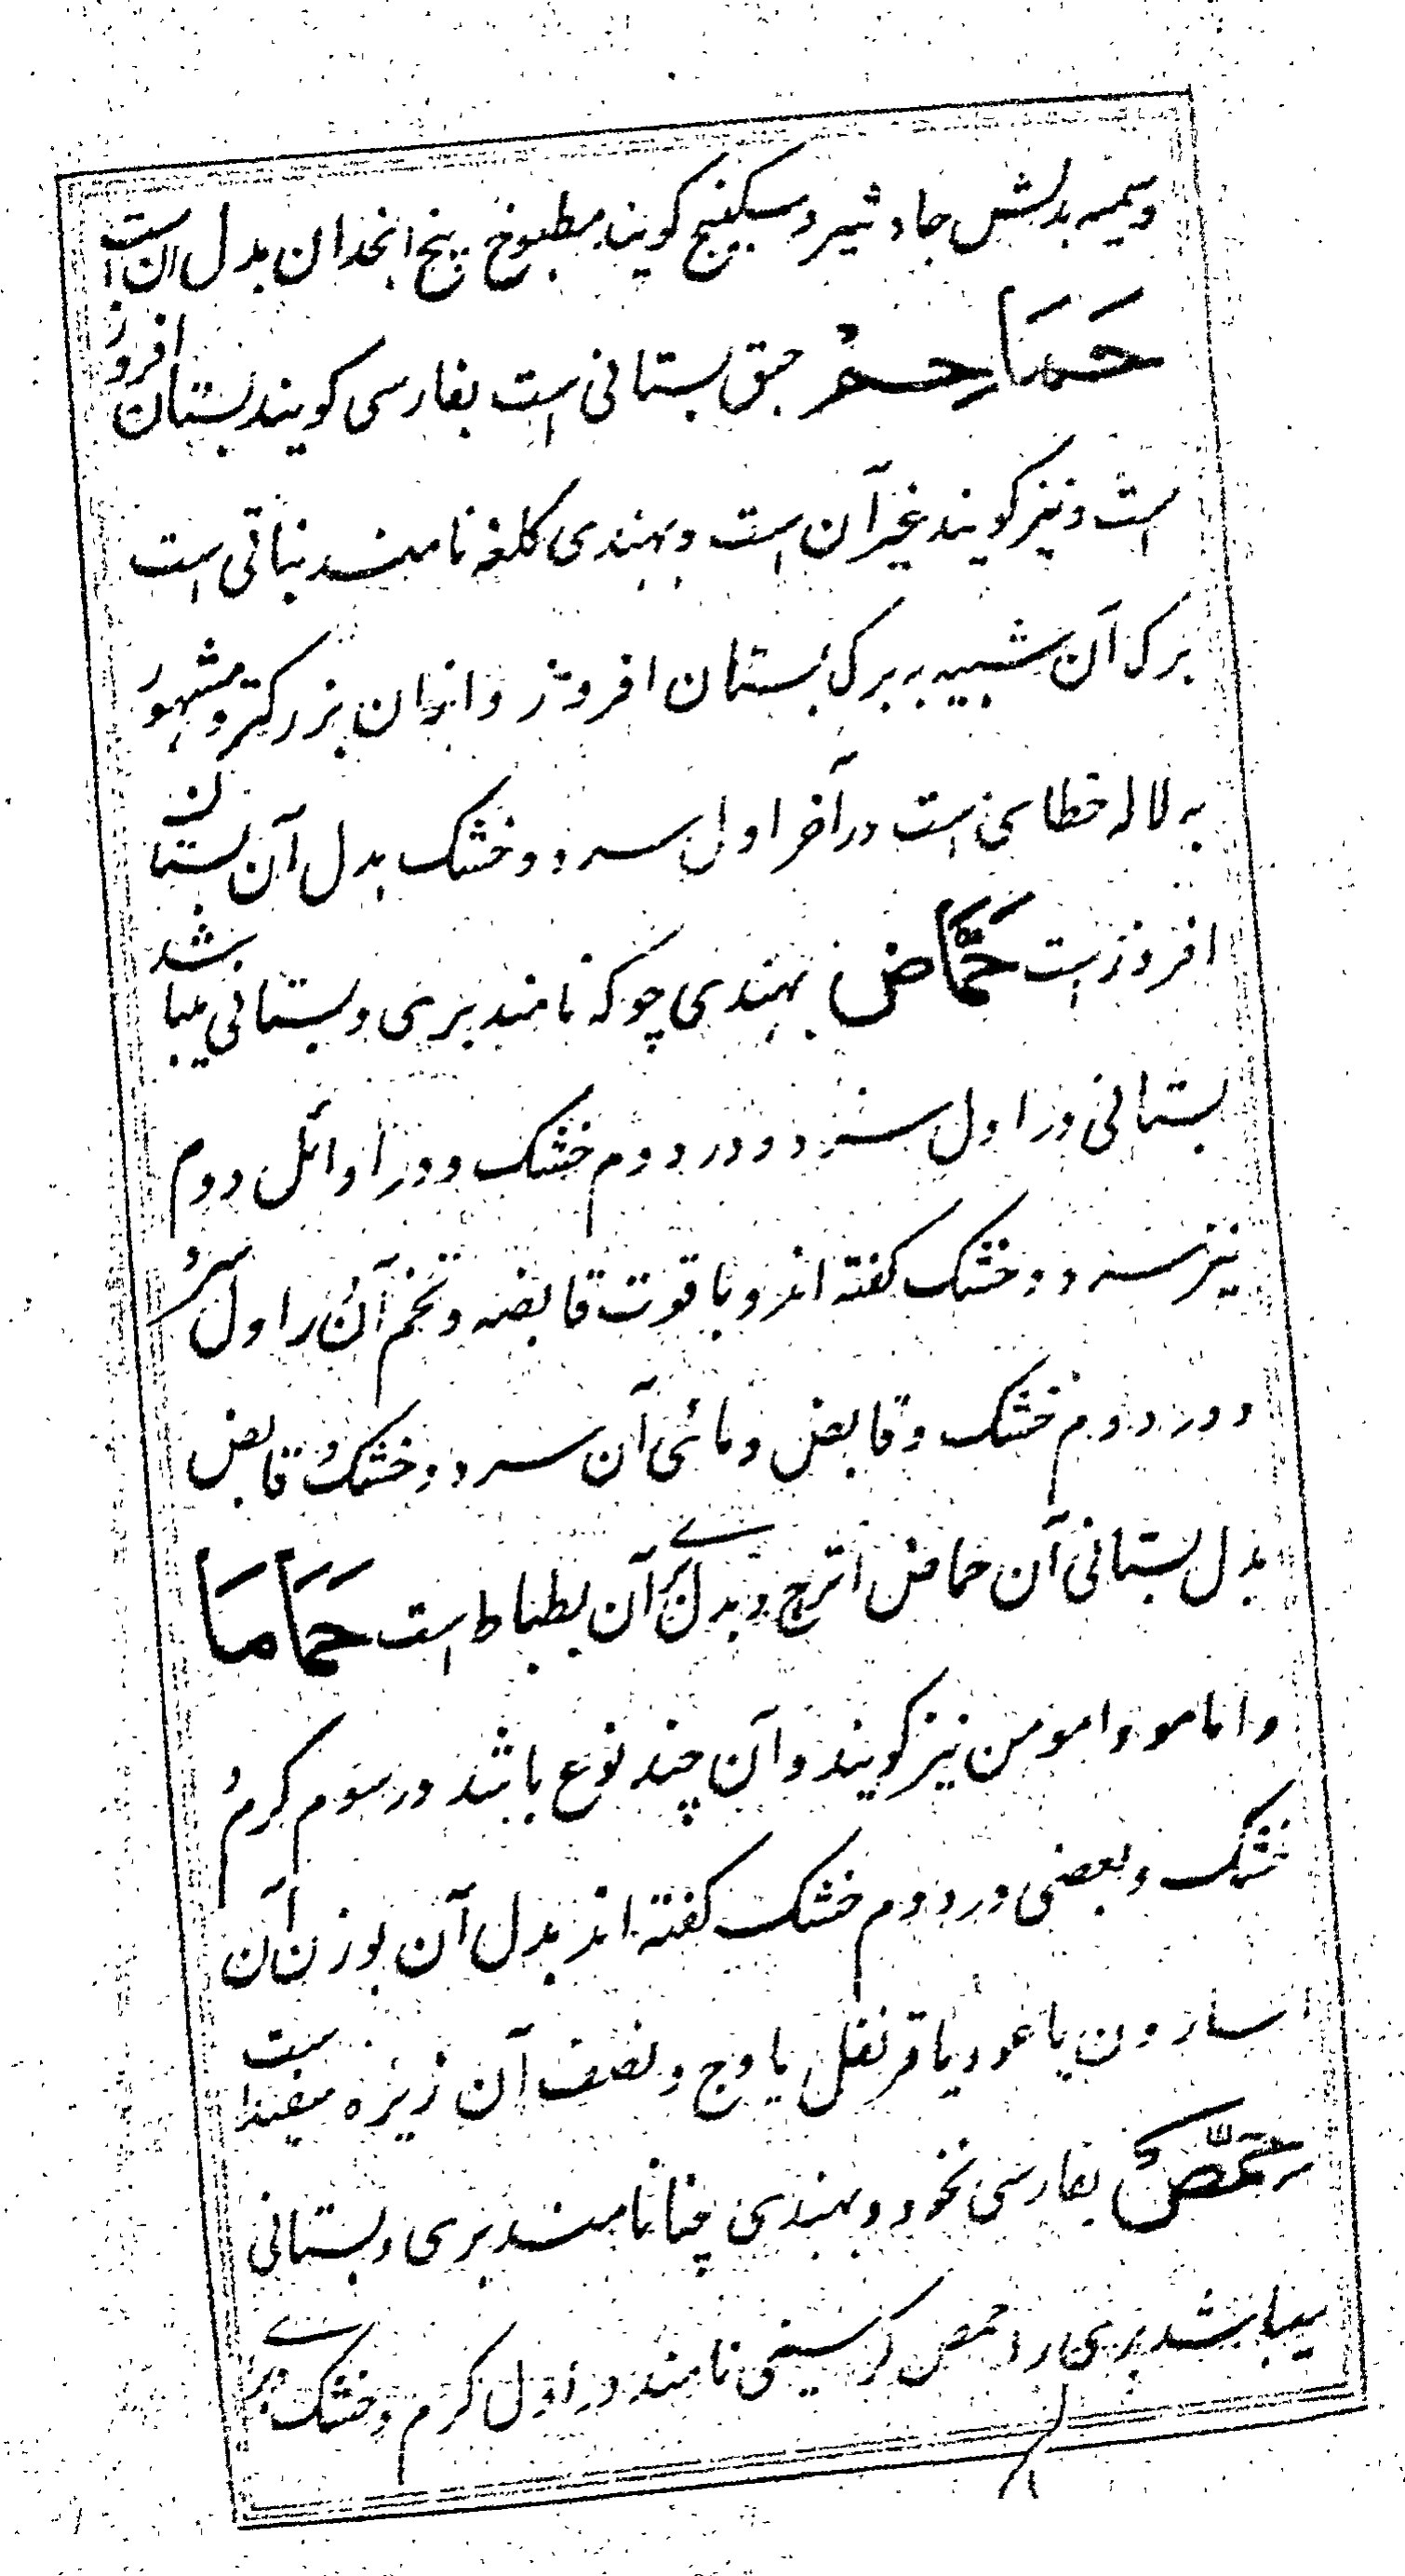 وسمیه بدلش جاوشیر و سکبینج کویند مطبوخ بیخ انجدان بدل آن است
حَمَاحِمْ حبق بستانی است بفارسی کویند بستان افروز
است و نیز کویند غیر آن است و بهندی کلغه نامند نباتی است
برک آن شبیه به برک بستان افروز و ازان بزرکتر و مشهور
به لاله خطاسی است در آخر اول سرد و خشک بدل آن بستان
افروز است حُمَّاض بهندی چوکه نامند بری و بستانی میباشد
بستانی در اول سرد و در دوم خشک و در اوائل دوم
نیز سرد و خشک کفته اند و با قوت قابضه و تخم آن در اول سرد
و در دوم خشک و قابض و مائی آن سرد و خشک و قابض
بدل بستانی آن حماض اترج و بدل بری آن بطباط است حَمَامَا
و امامو و امومن نیز کویند و آن چند نوع باشد در سوم کرم و
خشک و بعضی در دوم خشک کفته اند بدل آن بوزن آن
اسارون یا عود یا قرنفل یا وج و نصف آن زیره سفید است
حِمَّصْ بفارسی نخود و بهندی چنا نامند بری و بستانی
میباشد بری را حمص کرسینی نامند در اول کرم و خشک و بری